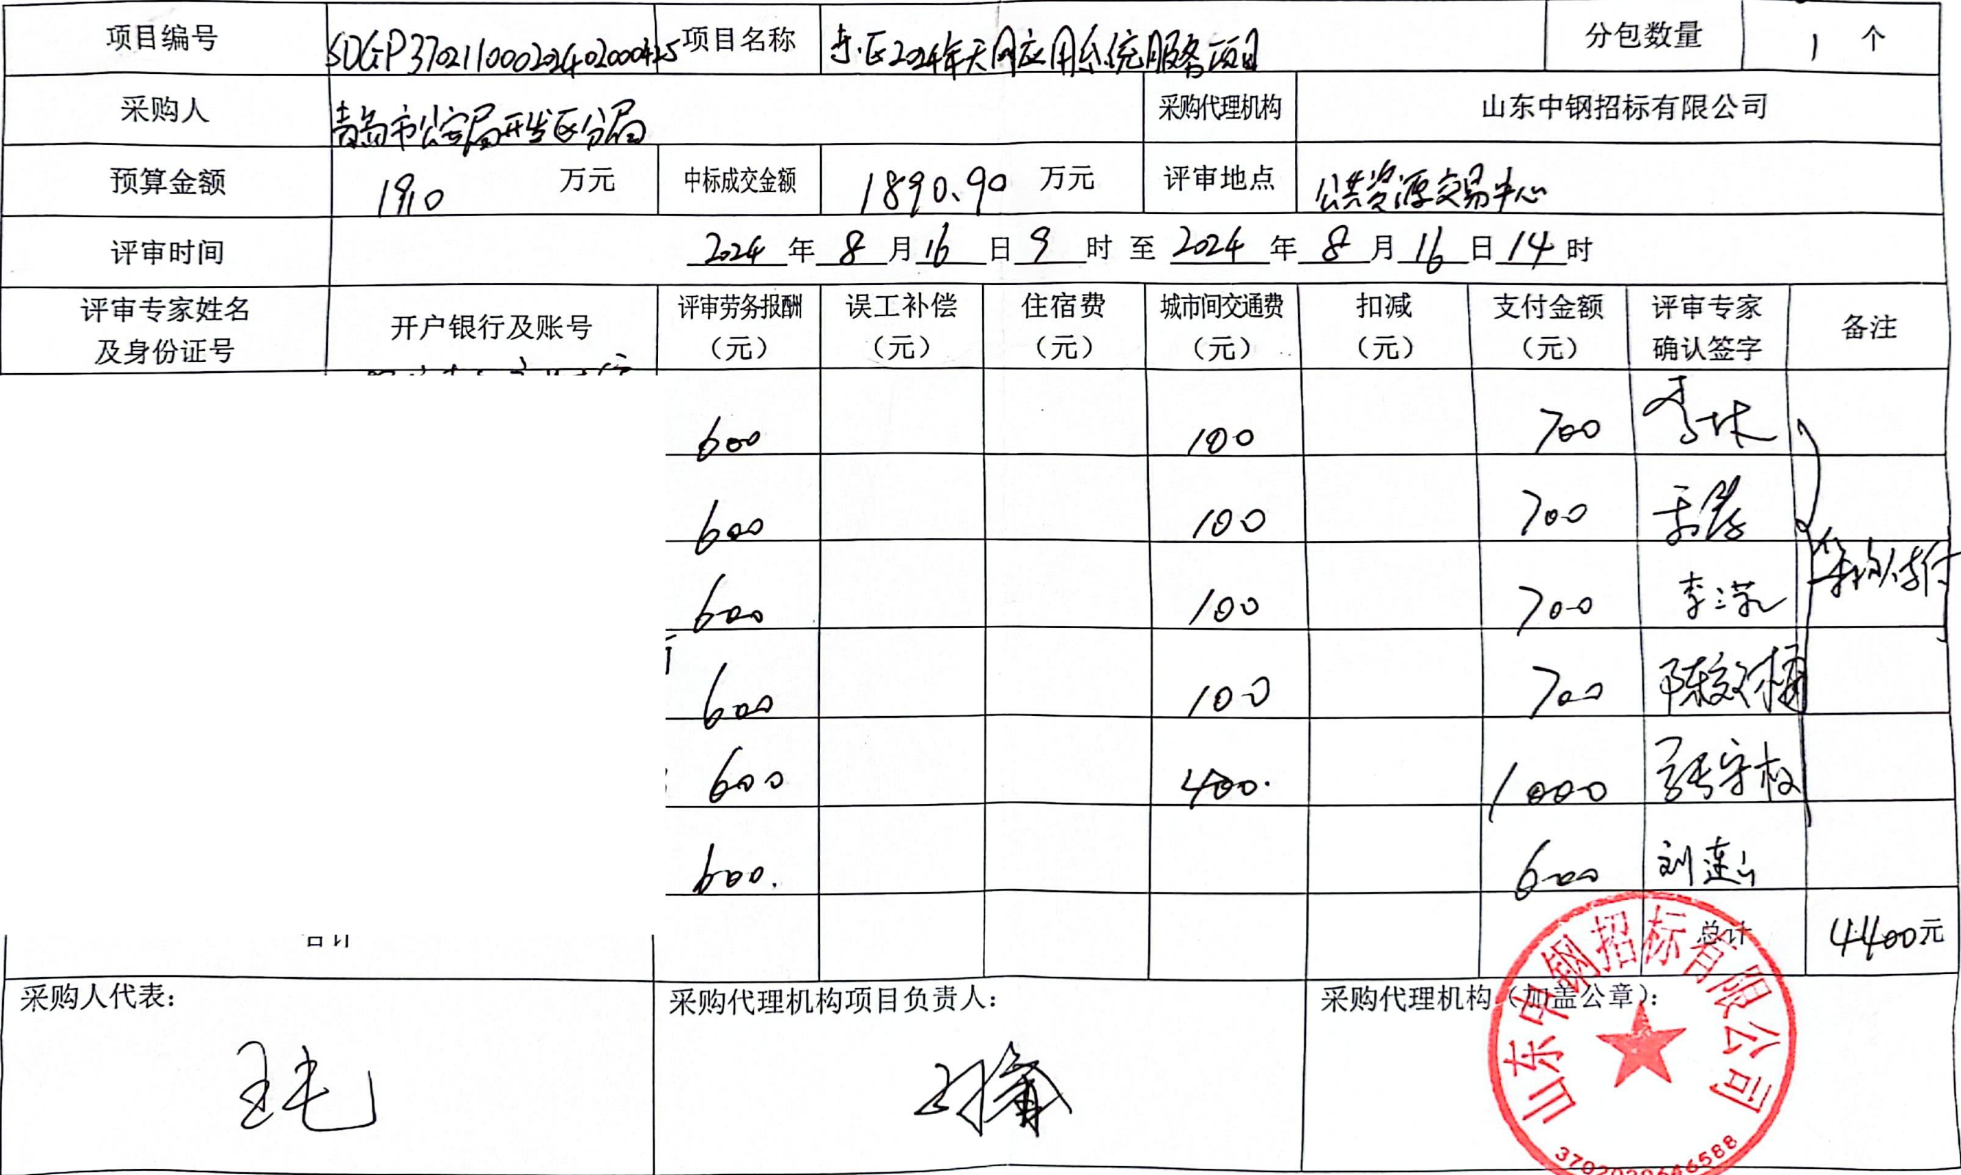 项目编号 SDGP370211000202402000425 项目名称 东区2024年天网应用系统服务项目 分包数量 1 个
采购人 青岛市公安局开发区分局 采购代理机构 山东中钢招标有限公司
预算金额 1910 万元 中标成交金额 1890.90 万元 评审地点 公共资源交易中心
评审时间 2024 年 8 月 16 日 9 时 至 2024 年 8 月 16 日 14 时
评审专家姓名 及身份证号 开户银行及账号 评审劳务报酬 (元) 误工补偿 (元) 住宿费 (元) 城市间交通费 (元) 扣减 (元) 支付金额 (元) 评审专家 确认签字 备注
600 100 700
600 100 700
600 100 700 李
600 100 700 陈
600 400. 1000 张守权
600. 600 刘莲山
合计 总计 4400元
采购人代表: 采购代理机构项目负责人: 采购代理机构(加盖公章):
王毛
山东中钢招标有限公司